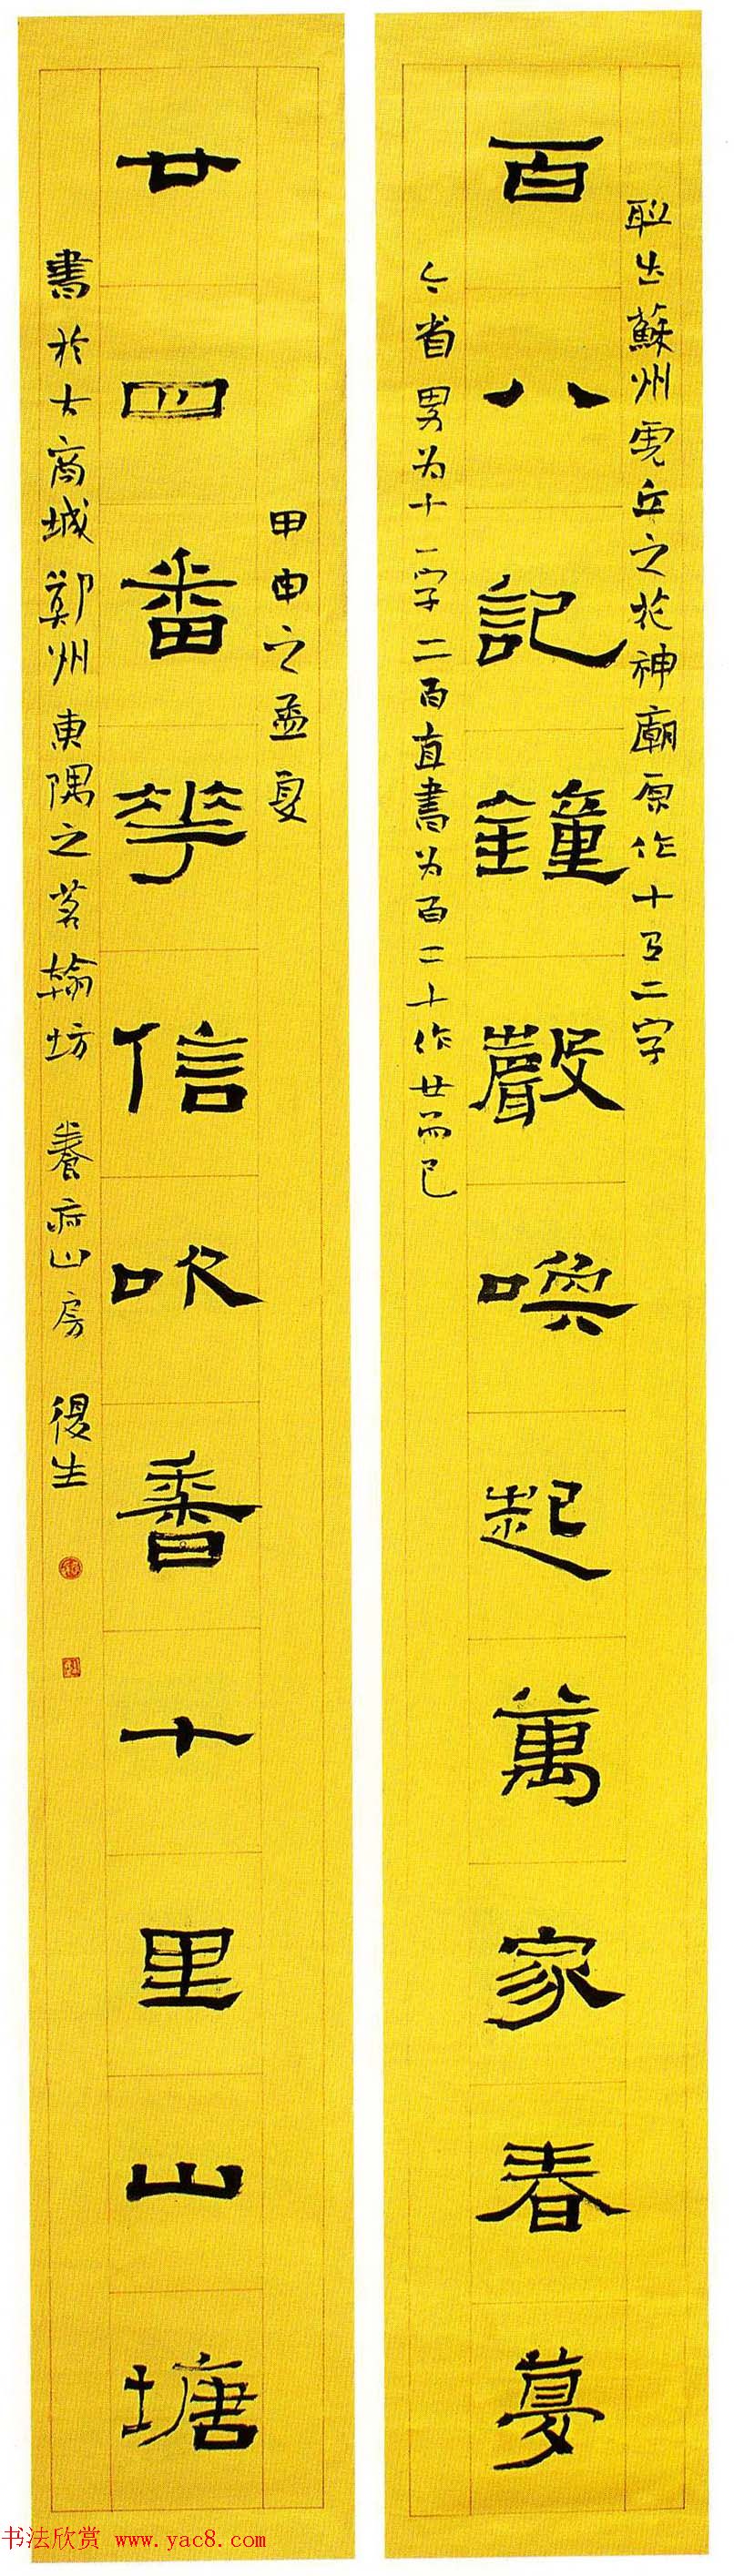 聯出蘇州虎丘之花神廟原作十又二字
百八記鐘聲喚起萬家春夢
今省易为十一字二百直書为百二十作廿而已
甲申之孟夏
廿四番華信吹香十里山塘
書於古商城鄭州東隅之茗翰坊 養山房 復生
书法欣赏 www.yac8.com